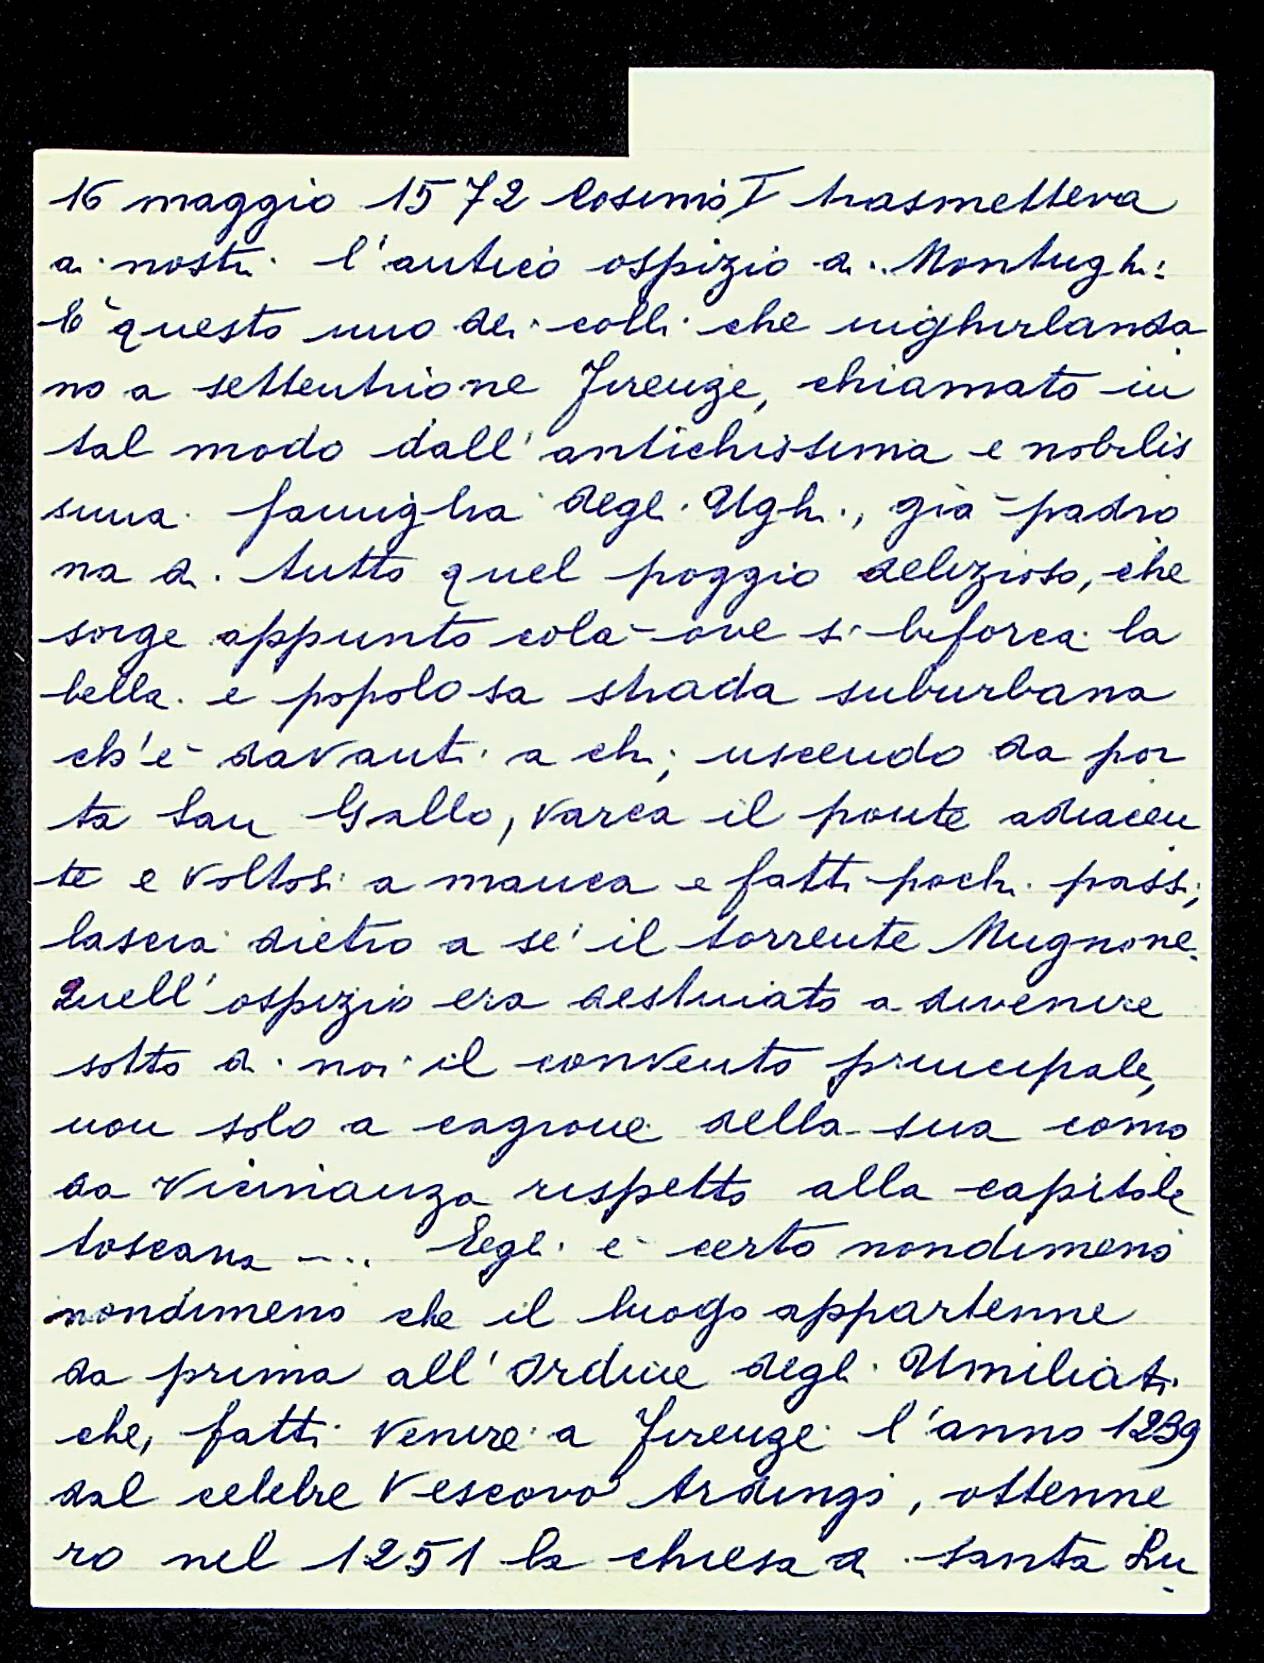 16 maggio 1572 Cosimo I trasmetteva
ai nostri l'antico ospizio di Montughi:
E' questo uno dei colli che inghirlanda
no a settentrione Firenze, chiamato in
tal modo dall'antichissima e nobilis
sima famiglia degli Ughi, già padro
na di tutto quel poggio delizioso, che
sorge appunto colà ove si biforca la
bella e popolosa strada suburbana
ch'è davanti a chi, uscendo da por
ta San Gallo, varca il ponte adiacen
te e voltosi a manca e fatti pochi passi,
lascia dietro a sé il torrente Mugnone.
Quell'ospizio era destinato a divenire
sotto di noi il convento principale,
non solo a cagione della sua como
da vicinanza rispetto alla capitale
toscana ... Egli è certo nondimeno
nondimeno che il luogo appartenne
da prima all'Ordine degli Umiliati
che, fatti venire a Firenze l'anno 1239
dal celebre Vescovo Ardingo, ottenne
ro nel 1251 la chiesa di Santa Lu